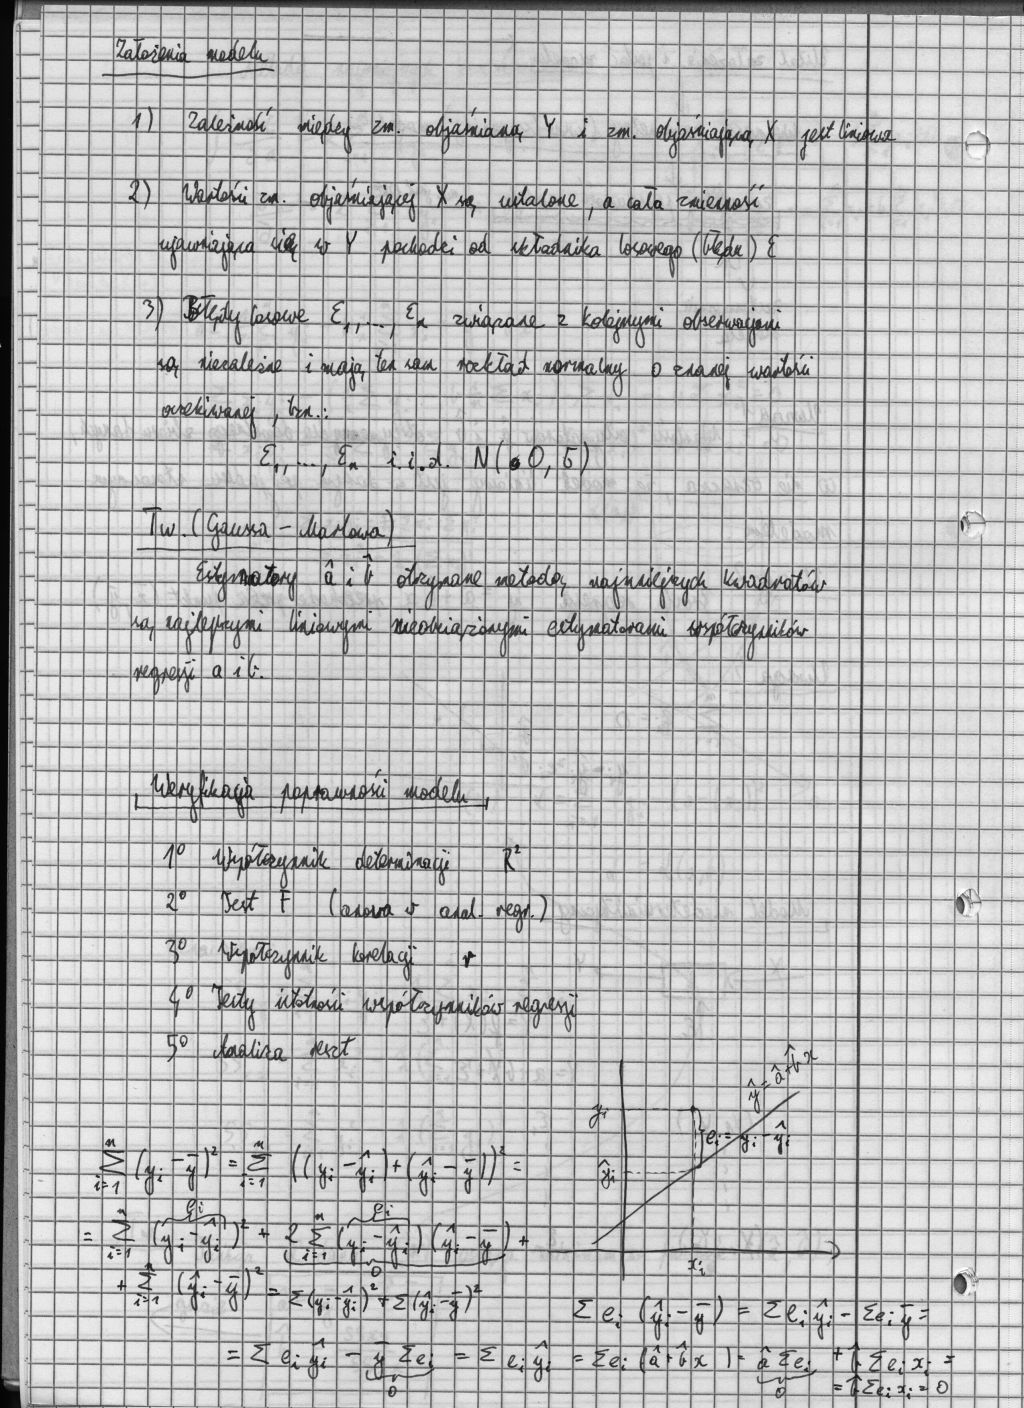 Założenia modelu
1) Zależność między zm. objaśnianą Y i zm. objaśniającą X jest liniowa
2) Wartości zm. objaśniającej X są ustalone, a cała zmienność
ujawniająca się w Y pochodzi od składnika losowego (błędu) ε
3) Błędy losowe ε₁, ..., εₙ związane z kolejnymi obserwacjami
są niezależne i mają ten sam rozkład normalny o znanej wartości
oczekiwanej, tzn.:
ε₁, ..., εₙ i.i.d. N(0, σ)
Tw. (Gaussa - Markowa)
Estymatory â i b̂ otrzymane metodą najmniejszych kwadratów
są najlepszymi liniowymi nieobciążonymi estymatorami współczynników
regresji a i b.
Weryfikacja poprawności modelu
1° Współczynnik determinacji R²
2° Test F (anova w anal. regr.)
3° Współczynnik korelacji r
4° Testy istotności współczynników regresji
5° Analiza reszt
ŷ = â + b̂x
yᵢ
eᵢ = yᵢ - ŷᵢ
ŷᵢ
xᵢ
∑ᵢ₌₁ⁿ (yᵢ - ȳ)² = ∑ᵢ₌₁ⁿ ((yᵢ - ŷᵢ) + (ŷᵢ - ȳ))² =
eᵢ eᵢ
= ∑ᵢ₌₁ⁿ (yᵢ - ŷᵢ)² + 2∑ᵢ₌₁ⁿ (yᵢ - ŷᵢ)(ŷᵢ - ȳ) +
0
+ ∑ᵢ₌₁ⁿ (ŷᵢ - ȳ)² = ∑(yᵢ - ŷᵢ)² + ∑(ŷᵢ - ȳ)²
∑ eᵢ (ŷᵢ - ȳ) = ∑ eᵢ ŷᵢ - ∑ eᵢ ȳ =
= ∑ eᵢ ŷᵢ - ȳ ∑ eᵢ = ∑ eᵢ ŷᵢ = ∑ eᵢ (â + b̂x) = â ∑ eᵢ + b̂ ∑ eᵢ xᵢ =
0 0
= b̂ ∑ eᵢ xᵢ = 0